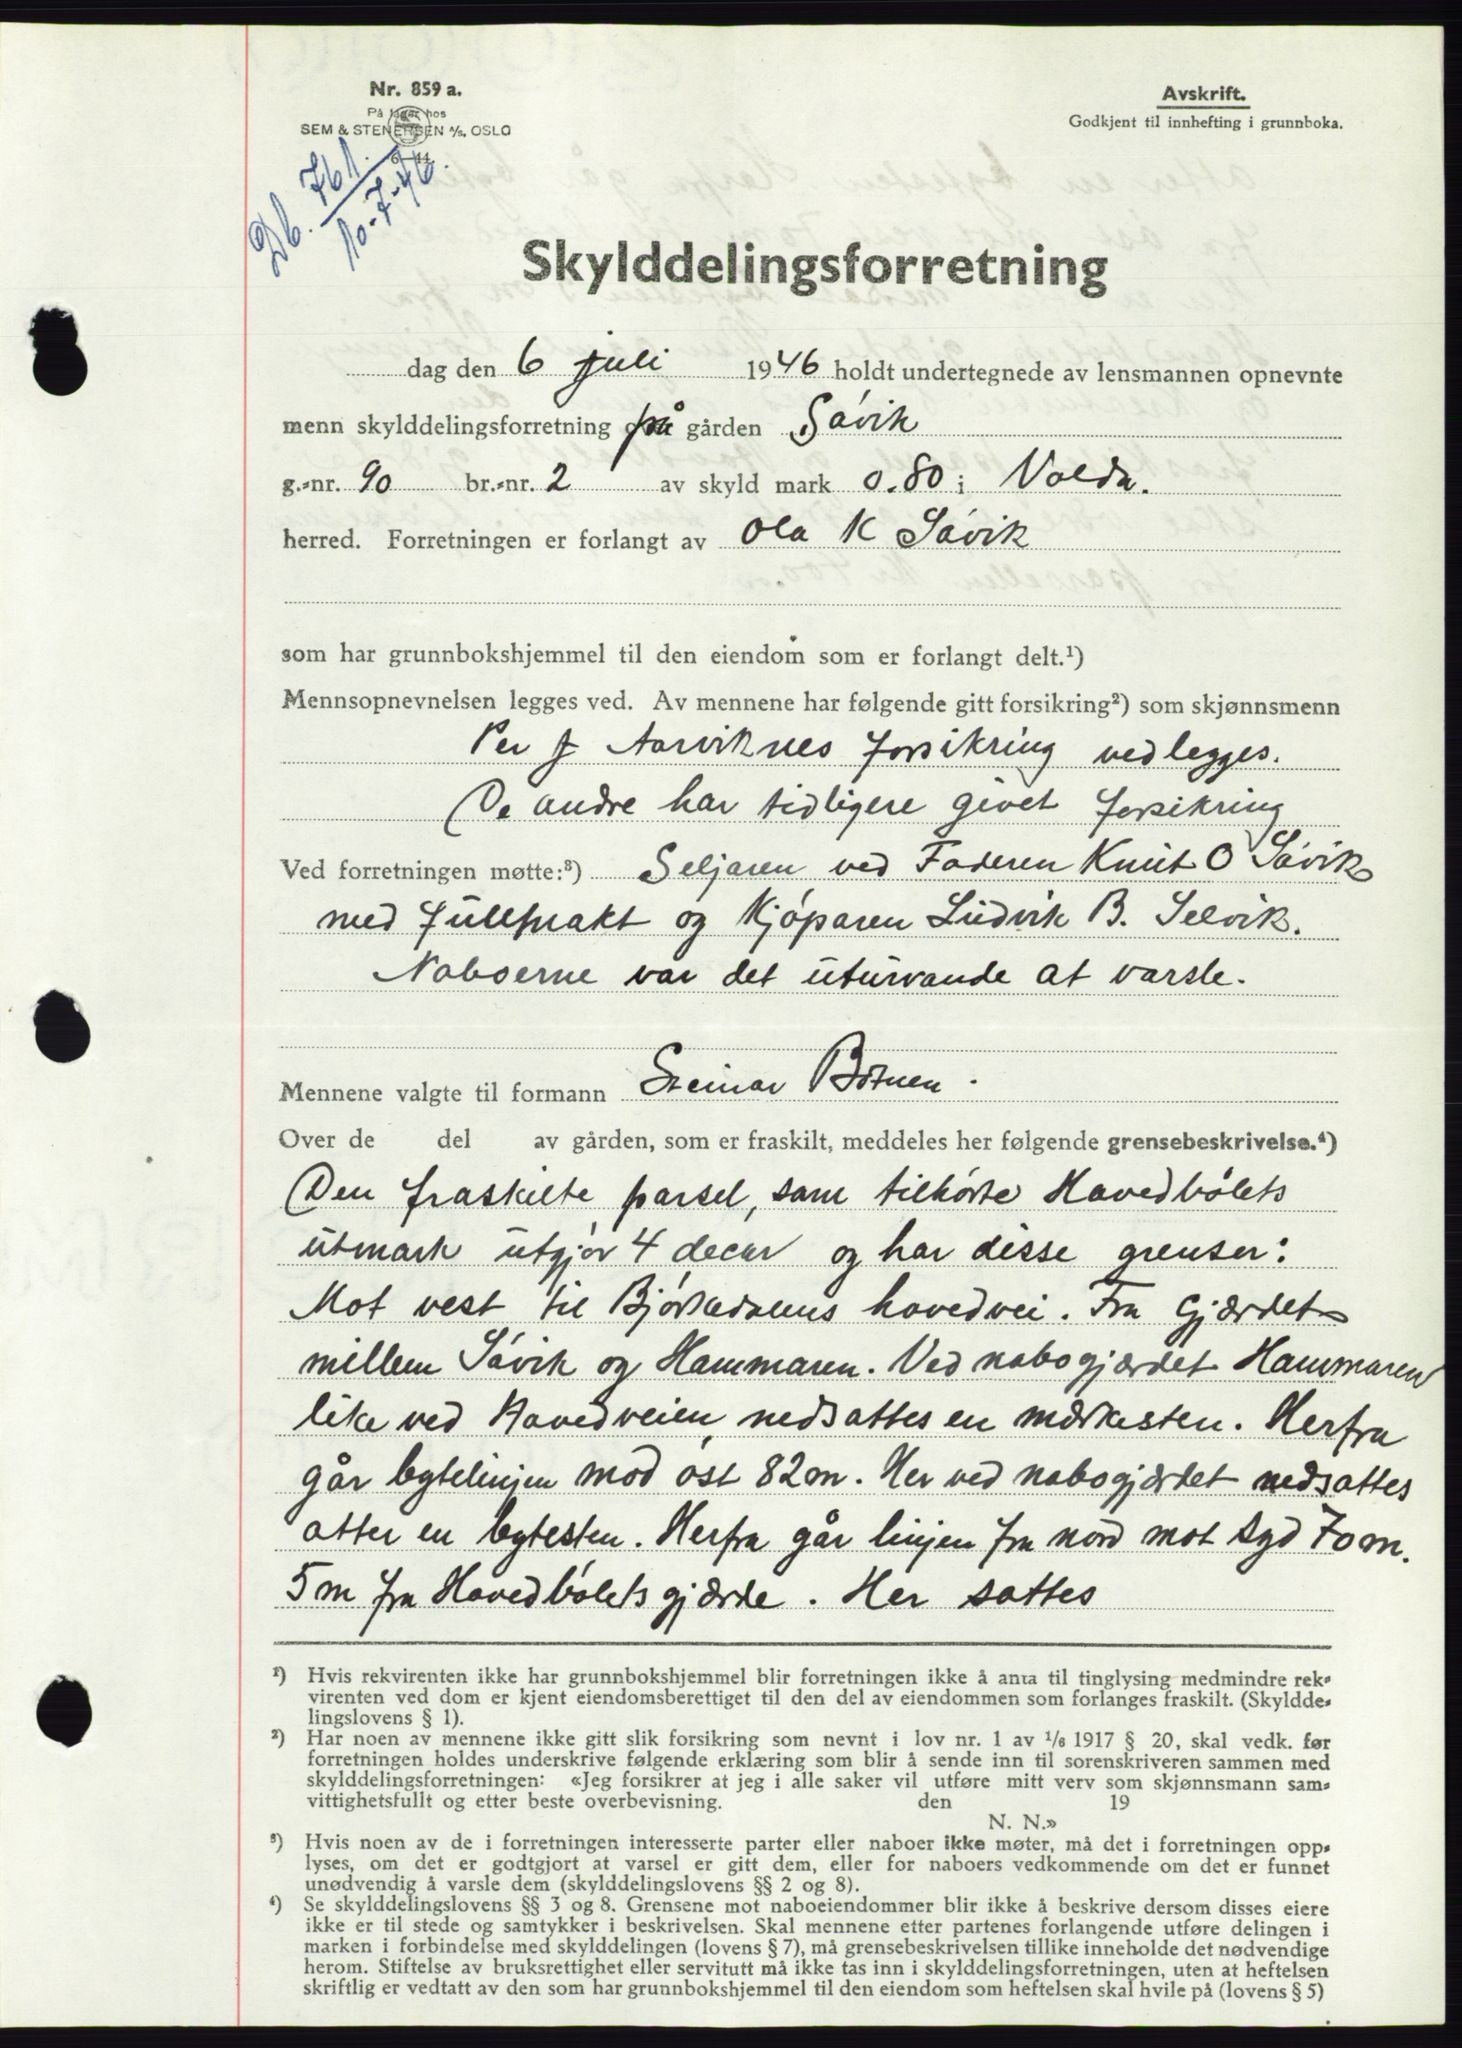 Nr. 859 a.
På lager hos
SEM & STENERSEN A/S, OSLO
6—44.
Avskrift.
Godkjent til innhefting i grunnboka.
Db. 761.
10-7-46.
Skylddelingsforretning
dag den 6 juli 1946 holdt undertegnede av lensmannen opnevnte
menn skylddelingsforretning på gården Sávik
g.-nr. 90 br.-nr. 2 av skyld mark 0.80 i Volda.
herred. Forretningen er forlangt av Ola K Sávik
som har grunnbokshjemmel til den eiendom som er forlangt delt.¹)
Mennsopnevnelsen legges ved. Av mennene har følgende gitt forsikring²) som skjønnsmenn
Per J Aarviknes forsikring vedlegges.
De andre har tidligere givet forsikring
Ved forretningen møtte:³) Seljaren ved Faderen Knut O Sávik
med fullmakt og Kjóparen Ludvik B. Selvik.
Naboerne var det uturvande at varsle.
Mennene valgte til formann Steinar Botnen.
Over de del av gården, som er fraskilt, meddeles her følgende grensebeskrivelse.⁴)
Den fraskilte parsel, som tilhórte Havedbólets
utmark utgjór 4 decar og har disse grenser:
Mot vest til Bjórkedalens hovedvei. Fra Gjærdet
millem Sávik og Hammaren. Ved nabogjærdet Hammaren
like ved Havedveien nedsattes en merkesten. Herfra
går bytelinjen mod óst 82m. Her ved nabogjærdet nedsattes
atter en bytesten. Herfra går linjen fra nord mot syd 70m.
5m fra Havedbóletsgjærde. Her sattes
¹) Hvis rekvirenten ikke har grunnbokshjemmel blir forretningen ikke å anta til tinglysing medmindre rek-
virenten ved dom er kjent eiendomsberettiget til den del av eiendommen som forlanges fraskilt. (Skyldde-
lingslovens § 1).
²) Har noen av mennene ikke gitt slik forsikring som nevnt i lov nr. 1 av 1/6 1917 § 20, skal vedk. før
forretningen holdes underskrive følgende erklæring som blir å sende inn til sorenskriveren sammen med
skylddelingsforretningen: «Jeg forsikrer at jeg i alle saker vil utføre mitt verv som skjønnsmann sam-
vittighetsfullt og etter beste overbevisning. den 19
N. N.»
³) Hvis noen av de i forretningen interesserte parter eller naboer ikke møter, må det i forretningen opp-
lyses, om det er godtgjort at varsel er gitt dem, eller for naboers vedkommende om det er funnet
unødvendig å varsle dem (skylddelingslovens §§ 2 og 8).
⁴) Se skylddelingslovens §§ 3 og 8. Grensene mot naboeiendommer blir ikke å beskrive dersom disses eiere
ikke er til stede og samtykker i beskrivelsen. Skal mennene etter partenes forlangende utføre delingen i
marken i forbindelse med skylddelingen (lovens § 7), må grensebeskrivelsen tillike inneholde det nødvendige
herom. Stiftelse av bruksrettighet eller servitutt må ikke tas inn i skylddelingsforretningen, uten at heftelsen
skriftlig er vedtatt av den som har grunnbokshjemmel til den eiendom som heftelsen skal hvile på (lovens § 5)